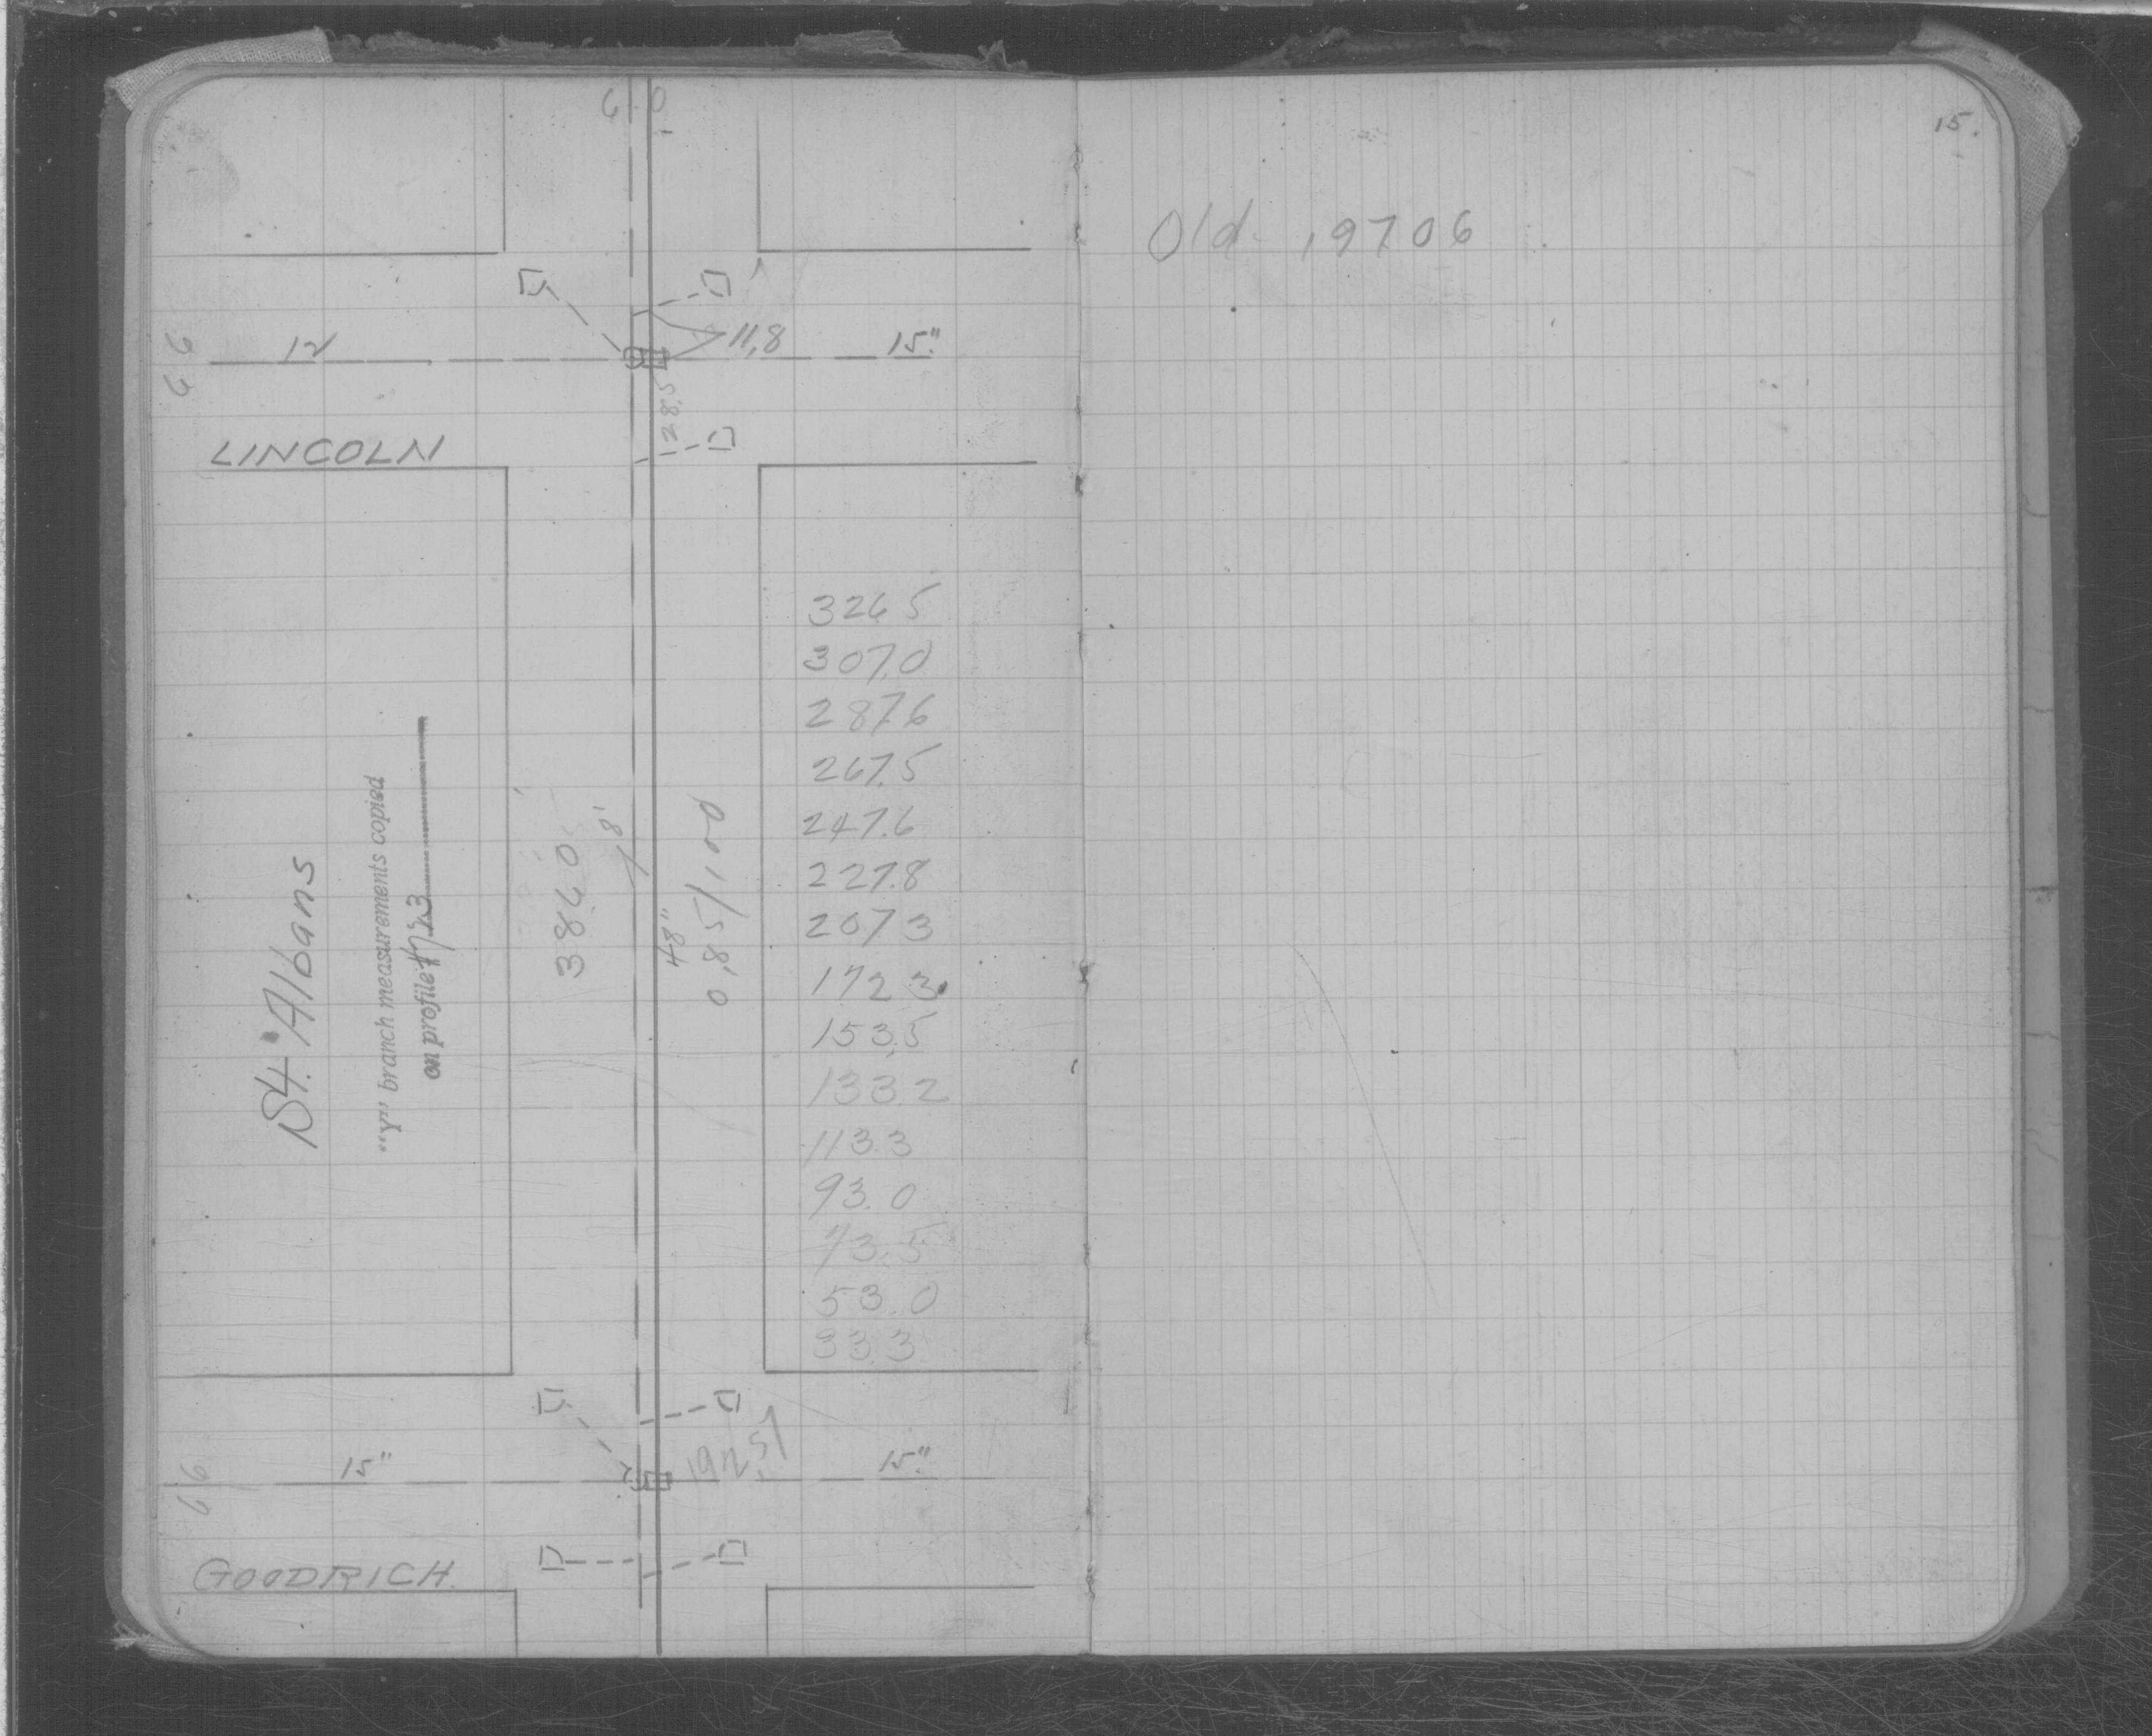 6 0
12
11,8
15"
66
28.5
LINCOLN
326 5
307.0
287.6
267.5
247.6
227.8
207 3
172 3
153.5
133.2
113.3
93.0
73.5
53.0
33.3
St. Albans
"Y" branch measurements copied
on profile
386.0
8'
48"
0,85/100
15"
192.5
15"
66
GOODRICH.
15.
Old 19706